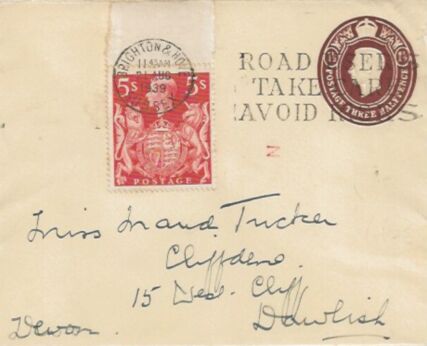 BRIGHTON & HOVE
11 45 AM
21 AUG
1939
SUSSEX
5S 5S
POSTAGE
ROAD USERS
TAKE CARE
AVOID RISKS
POSTAGE THREE HALFPENCE
N
Miss Maud Tucker
Cliffdene
15 West Cliff
Dawlish
Devon